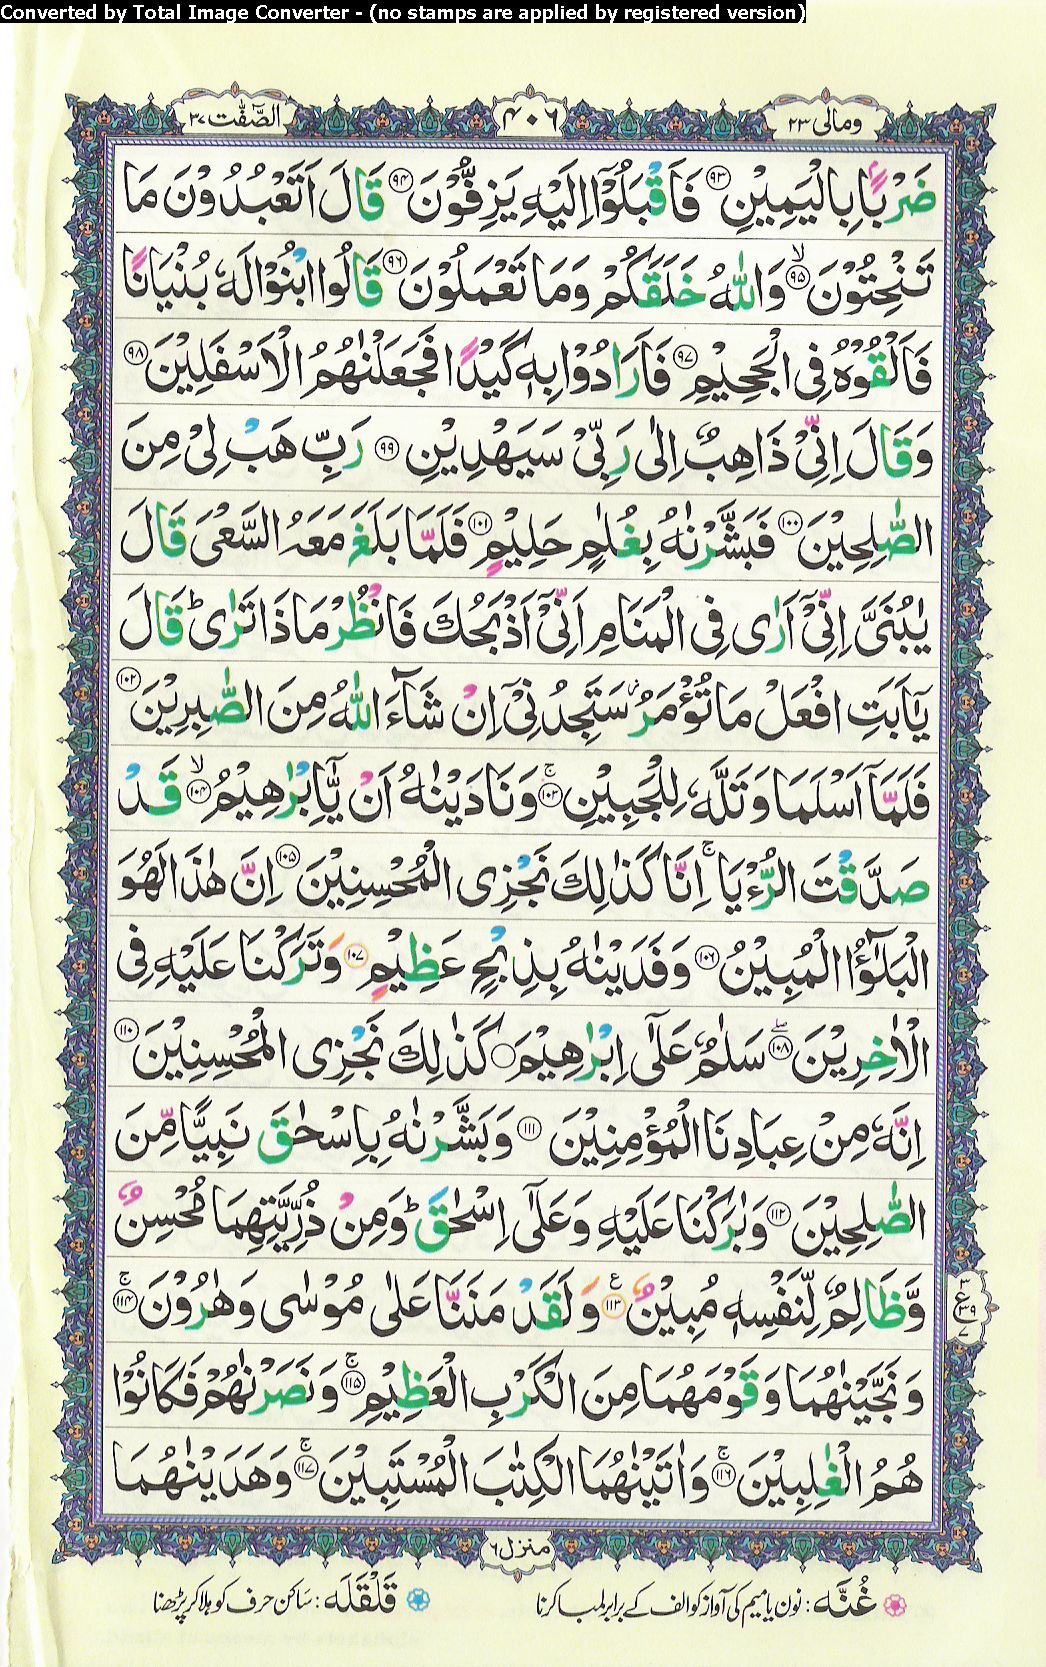 Converted by Total Image Converter - (no stamps are applied by registered version)
ومالی ۲۳ ۴۰۶ الصّٰٓفّٰت ۳۷
ضَرْبًۢا بِالْیَمِیْنِ ﴿۹۳﴾ فَاَقْبَلُوْۤا اِلَیْهِ یَزِفُّوْنَ ﴿۹۴﴾ قَالَ اَتَعْبُدُوْنَ مَا
تَنْحِتُوْنَ ﴿ۙ۹۵﴾ وَاللّٰهُ خَلَقَكُمْ وَمَا تَعْمَلُوْنَ ﴿۹۶﴾ قَالُوا ابْنُوْا لَهٗ بُنْیَانًا
فَاَلْقُوْهُ فِی الْجَحِیْمِ ﴿۹۷﴾ فَاَرَادُوْا بِهٖ كَیْدًا فَجَعَلْنٰهُمُ الْاَسْفَلِیْنَ ﴿۹۸﴾
وَقَالَ اِنِّیْ ذَاهِبٌ اِلٰی رَبِّیْ سَیَهْدِیْنِ ﴿۹۹﴾ رَبِّ هَبْ لِیْ مِنَ
الصّٰلِحِیْنَ ﴿۱۰۰﴾ فَبَشَّرْنٰهُ بِغُلٰمٍ حَلِیْمٍ ﴿۱۰۱﴾ فَلَمَّا بَلَغَ مَعَهُ السَّعْیَ قَالَ
یٰبُنَیَّ اِنِّیْۤ اَرٰی فِی الْمَنَامِ اَنِّیْۤ اَذْبَحُكَ فَانْظُرْ مَاذَا تَرٰی ؕ قَالَ
یٰۤاَبَتِ افْعَلْ مَا تُؤْمَرُ ؗ سَتَجِدُنِیْۤ اِنْ شَآءَ اللّٰهُ مِنَ الصّٰبِرِیْنَ ﴿۱۰۲﴾
فَلَمَّاۤ اَسْلَمَا وَتَلَّهٗ لِلْجَبِیْنِ ﴿ۚ۱۰۳﴾ وَنَادَیْنٰهُ اَنْ یّٰۤاِبْرٰهِیْمُ ﴿ۙ۱۰۴﴾ قَدْ
صَدَّقْتَ الرُّءْیَا ۚ اِنَّا كَذٰلِكَ نَجْزِی الْمُحْسِنِیْنَ ﴿۱۰۵﴾ اِنَّ هٰذَا لَهُوَ
الْبَلٰٓؤُا الْمُبِیْنُ ﴿۱۰۶﴾ وَفَدَیْنٰهُ بِذِبْحٍ عَظِیْمٍ ﴿۱۰۷﴾ وَتَرَكْنَا عَلَیْهِ فِی
الْاٰخِرِیْنَ ﴿ۖ۱۰۸﴾ سَلٰمٌ عَلٰۤی اِبْرٰهِیْمَ ○ كَذٰلِكَ نَجْزِی الْمُحْسِنِیْنَ ﴿۱۱۰﴾
اِنَّهٗ مِنْ عِبَادِنَا الْمُؤْمِنِیْنَ ﴿۱۱۱﴾ وَبَشَّرْنٰهُ بِاِسْحٰقَ نَبِیًّا مِّنَ
الصّٰلِحِیْنَ ﴿۱۱۲﴾ وَبٰرَكْنَا عَلَیْهِ وَعَلٰۤی اِسْحٰقَ ؕ وَمِنْ ذُرِّیَّتِهِمَا مُحْسِنٌ
وَّظَالِمٌ لِّنَفْسِهٖ مُبِیْنٌ ﴿۱۱۳﴾ ع وَلَقَدْ مَنَنَّا عَلٰی مُوْسٰی وَهٰرُوْنَ ﴿ۚ۱۱۴﴾
۳ ع ۳۹ ۷
وَنَجَّیْنٰهُمَا وَقَوْمَهُمَا مِنَ الْكَرْبِ الْعَظِیْمِ ﴿ۚ۱۱۵﴾ وَنَصَرْنٰهُمْ فَكَانُوْا
هُمُ الْغٰلِبِیْنَ ﴿ۚ۱۱۶﴾ وَاٰتَیْنٰهُمَا الْكِتٰبَ الْمُسْتَبِیْنَ ﴿ۚ۱۱۷﴾ وَهَدَیْنٰهُمَا
منزل ۶
غُنَّه : نون یا میم کی آواز کو الف کے برابر لمبا کرنا قَلْقَلَه : ساکن حرف کو ہلا کر پڑھنا